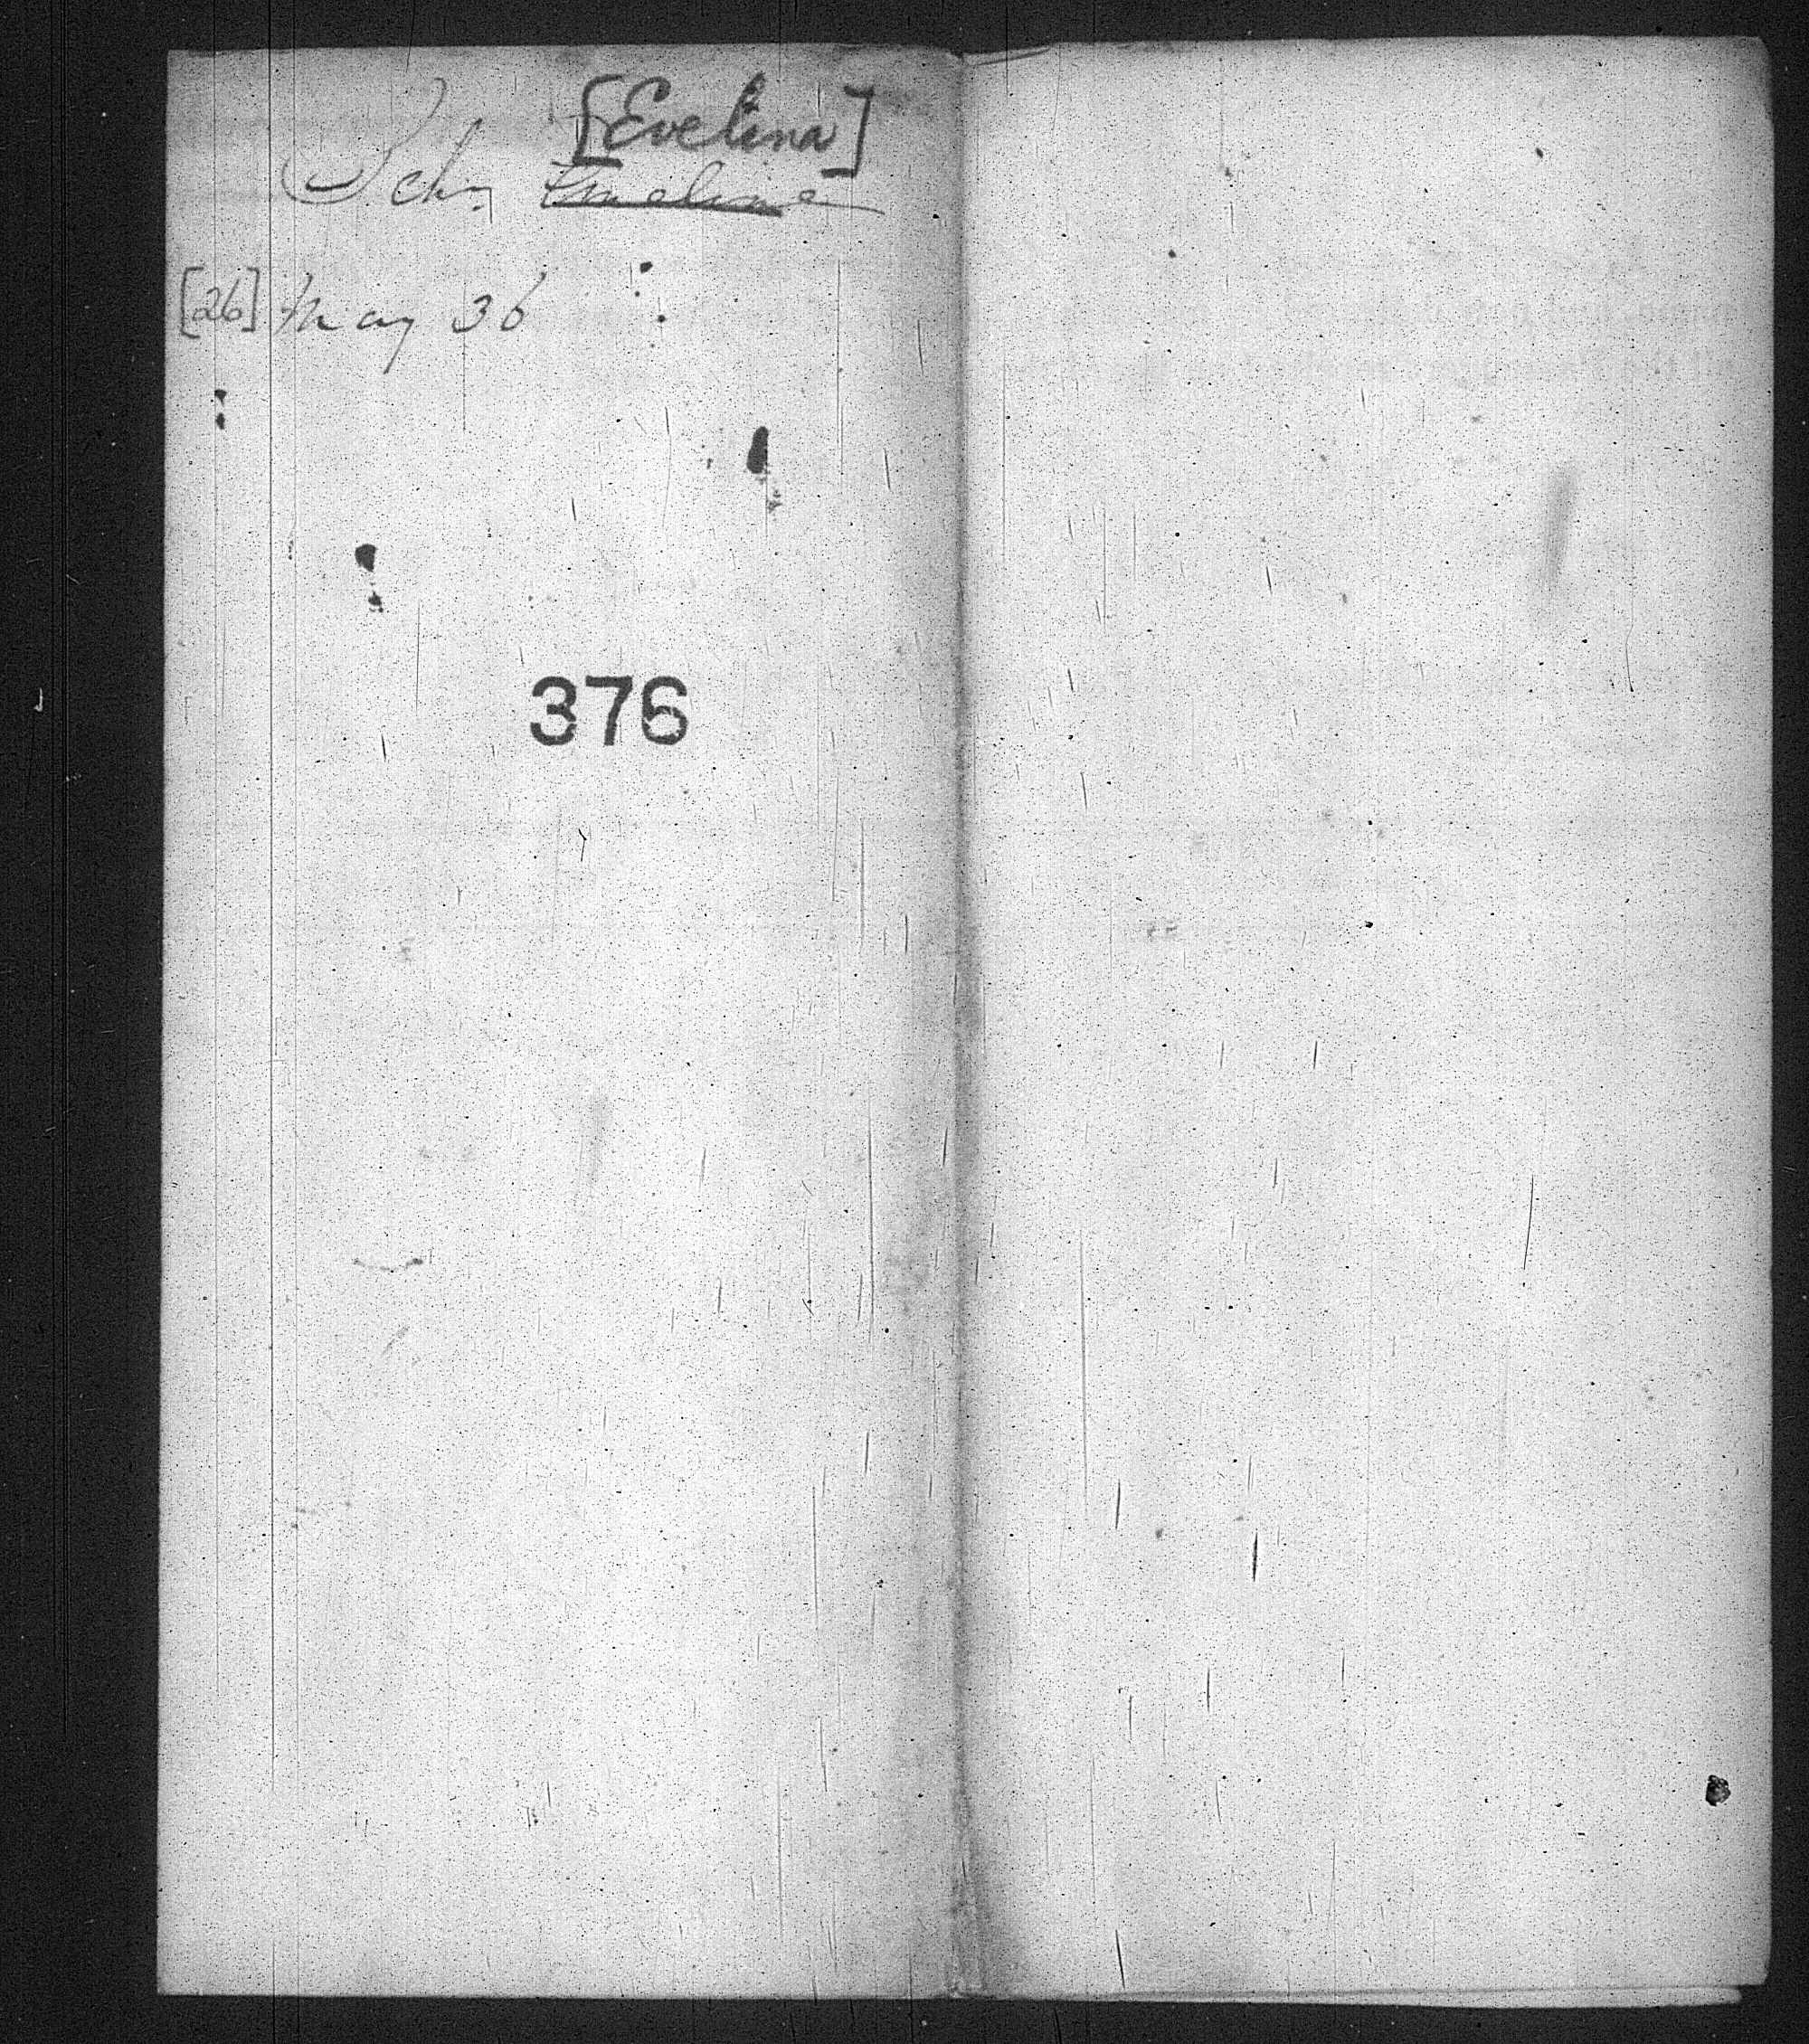 [Evelina]
Schr Emeline
[26] May 36
376